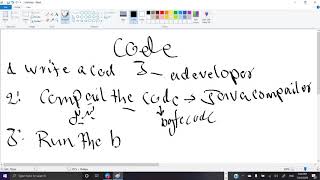 code
1 write a cod I_ adeveloper
2: Compeul the code → Java compailer
bytecodc
3: Run the b